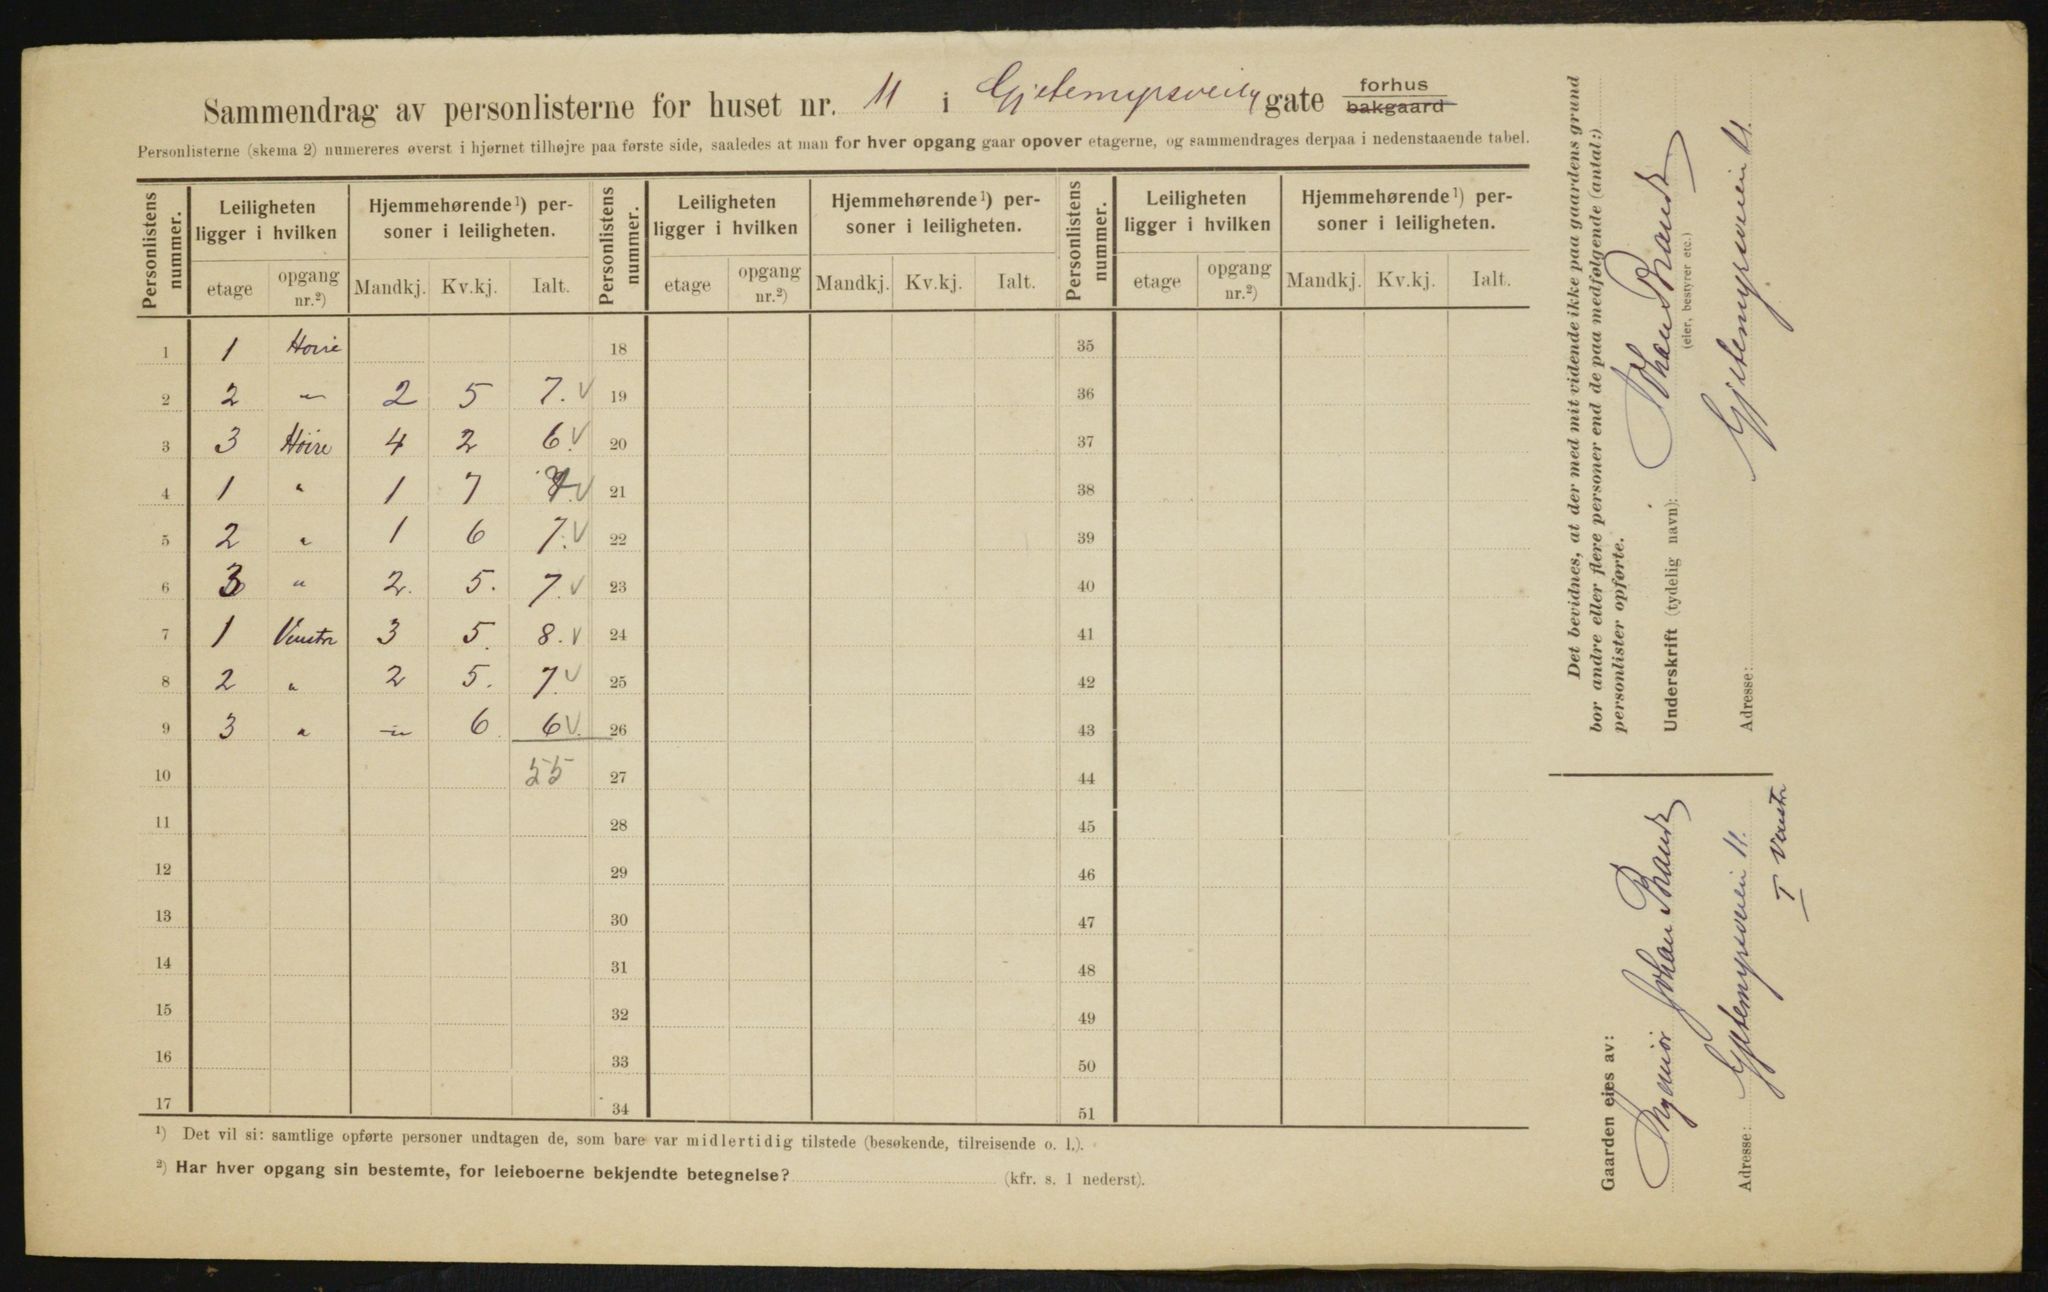 Sammendrag av personlisterne for huset nr. 11 i Gjetemyrsveien gate forhus bakgaard
Personlisterne (skema 2) numereres øverst i hjørnet tilhøjre paa første side, saaledes at man for hver opgang gaar opover etagerne, og sammendrages derpaa i nedenstaaende tabel.
Personlistens nummer. Leiligheten ligger i hvilken Hjemmehørende ¹) personer i leiligheten. Personlistens nummer. Leiligheten ligger i hvilken Hjemmehørende ¹) personer i leiligheten. Personlistens nummer. Leiligheten ligger i hvilken Hjemmehørende ¹) personer i leiligheten.
etage opgang nr.²) Mandkj. Kv.kj. Ialt. etage opgang nr.²) Mandkj. Kv.kj. Ialt. etage opgang nr.²) Mandkj. Kv.kj. Ialt.
1 1 Hoire 18 35
2 2 " 2 5 7. V 19 36
3 3 Höire 4 2 6 V 20 37
4 1 " 1 7 V 21 38
5 2 " 1 6 7. V 22 39
6 3 " 2. 5. 7. V 23 40
7 1 Venstre 3 5. 8. V 24 41
8 2 " 2 5. 7. V 25 42
9 3 " — 6 6 V. 26 43
10 55 27 44
11 28 45
12 29 46
13 30 47
14 31 48
15 32 49
16 33 50
17 34 51
¹) Det vil si: samtlige opførte personer undtagen de, som bare var midlertidig tilstede (besøkende, tilreisende o. l.).
²) Har hver opgang sin bestemte, for leieboerne bekjendte betegnelse? (kfr. s. 1 nederst).
Det bevidnes, at der med mit vidende ikke paa gaardens grund
bor andre eller flere personer end de paa medfølgende (antal:)
personlister opførte.
Underskrift (tydelig navn): Johan Brandt
(eier, bestyrer etc.)
Adresse: Gjetemyrsveien 11.
Gaarden eies av:
Johan Brandt
Adresse: Gjetemyrsveien 11.
I Venstre